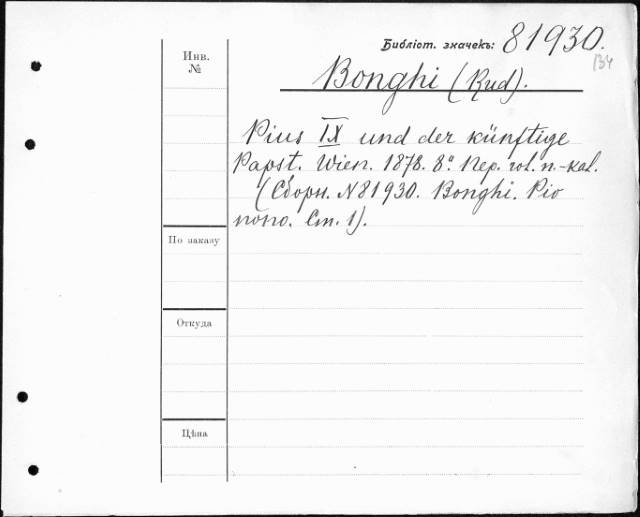 Библіот. значекъ: 81930.
134
Инв.
№
Bonghi (Rud).
Pius IX und der künftige
Papst. Wien. 1878. 8°. Пер. гол. п.-кал.
(Сборн. N81930. Bonghi. Pio
nono. Ст. 1).
По заказу
Откуда
Цѣна